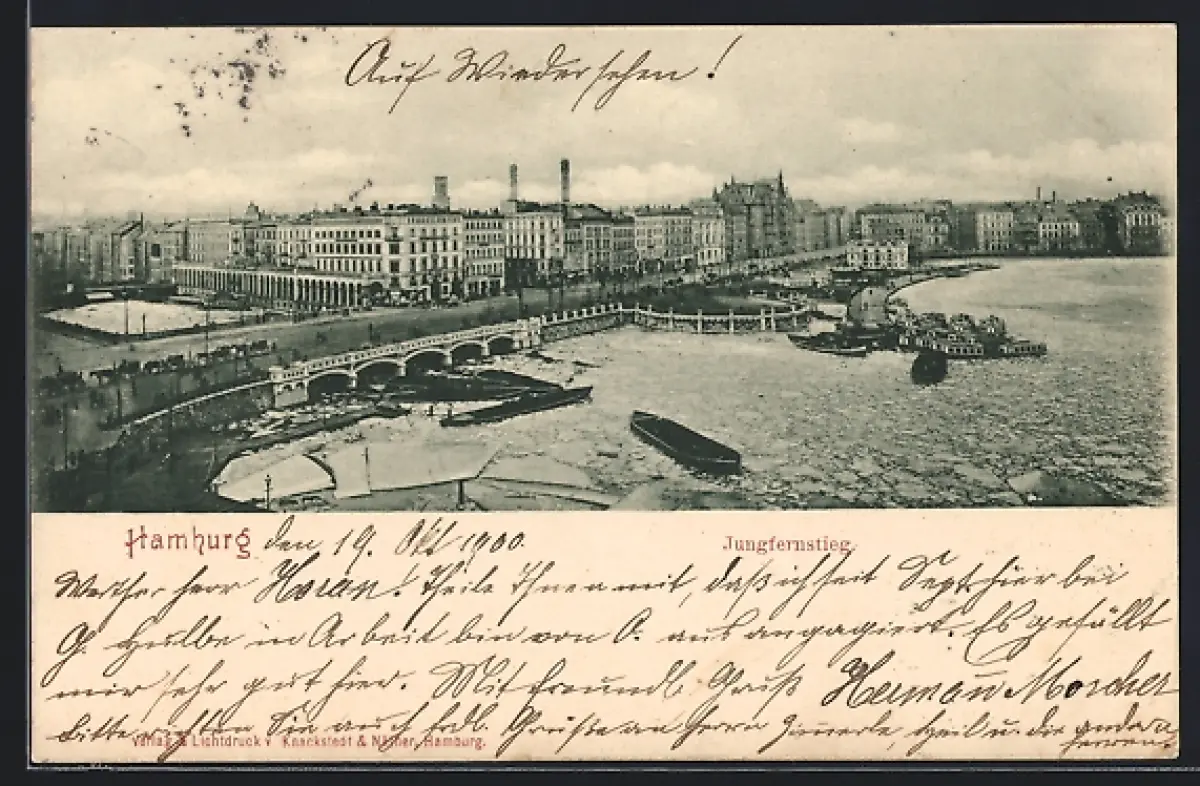 Auf Wiedersehen!
Hamburg den 19. Okt 1900.
Jungfernstieg.
Werther Herr Horan! Theile Ihnen mit, daß ich seit Sept. hier bei
G. Hulbe in Arbeit bin von O. aus angagiert. Es gefällt
mir sehr gut hier. Mit freundl. Gruß Herman Morcher
Bitte richten Sie auch frdl. Grüße an Herrn Zimerle, Heil u. die andern
Herren.
Verlag & Lichtdruck v. Knackstedt & Näther, Hamburg.